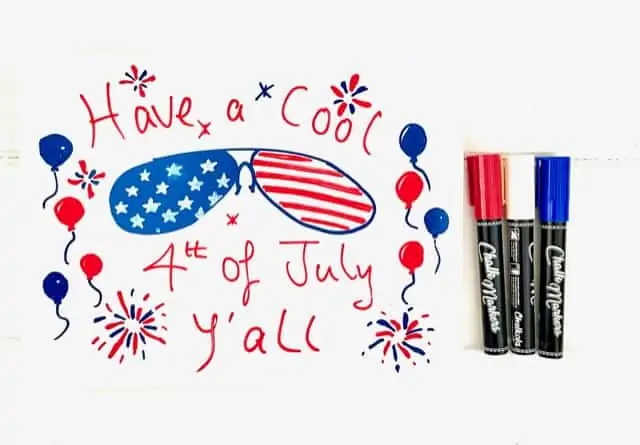 Have a Cool
4th of July
Y'all
Chalk Markers
Chalkola
Chalk Markers